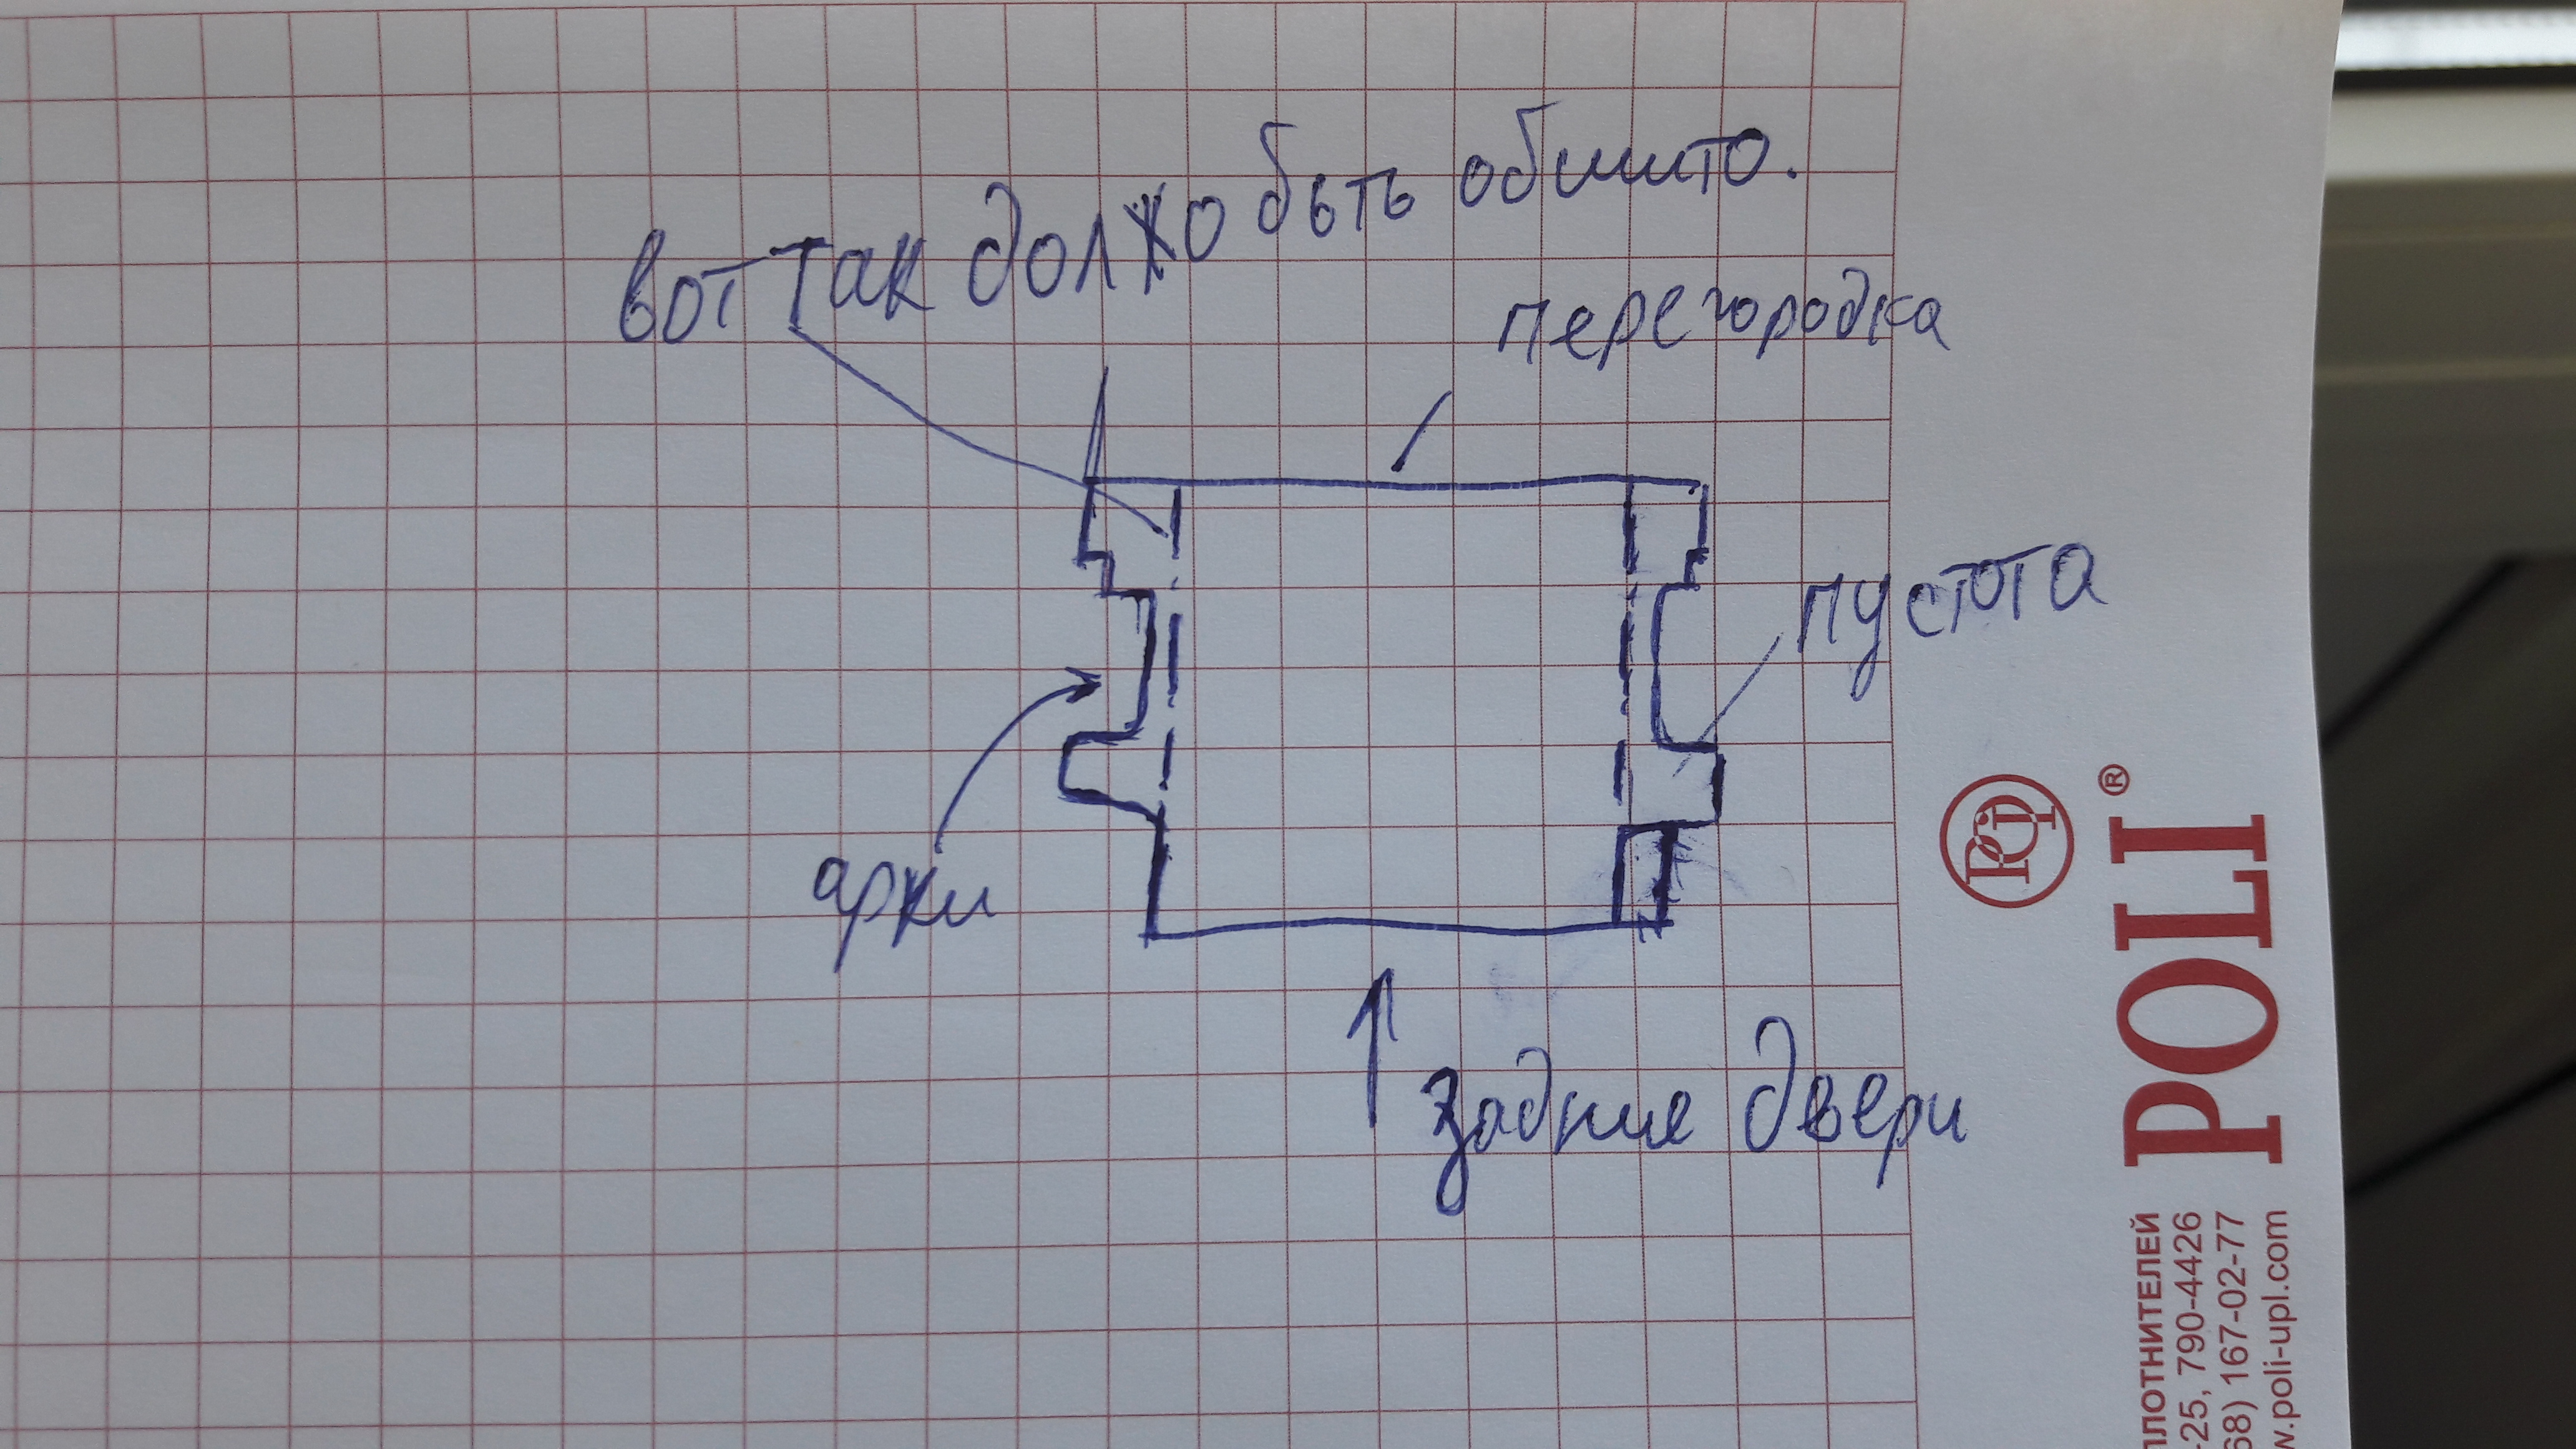 вот так должо быть обшито.
перегородка
пустота
арки
задние двери
POLI®
ПЛОТНИТЕЛЕЙ
-25, 790-4426
68) 167-02-77
w.poli-upl.com